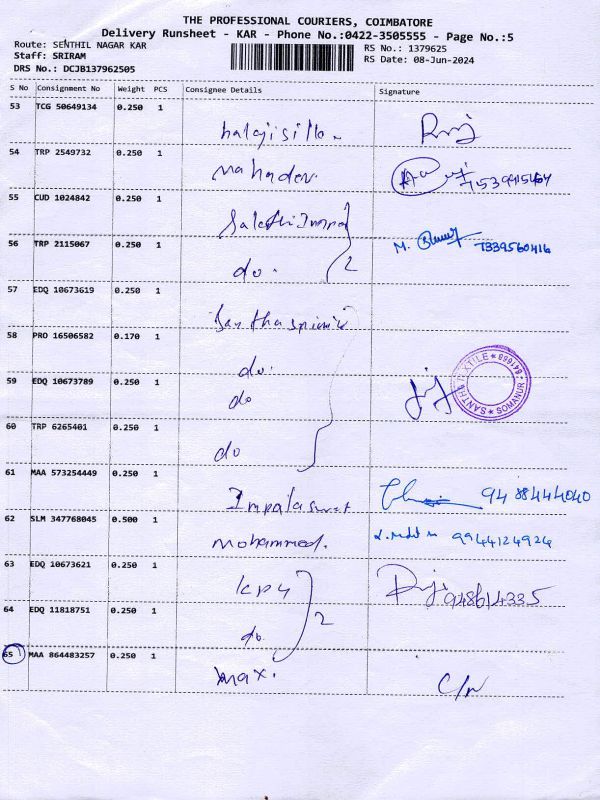 THE PROFESSIONAL COURIERS, COIMBATORE
Delivery Runsheet - KAR - Phone No.:0422-3505555 - Page No.:5
Route: SENTHIL NAGAR KAR
Staff: SRIRAM
DRS No.: DCJB137962505
RS No.: 1379625
RS Date: 08-Jun-2024
S No Consignment No Weight PCS Consignee Details Signature
53 TCG 50649134 0.250 1
balajisilks
54 TRP 2549732 0.250 1
Mahadev.
55 CUD 1024842 0.250 1
56 TRP 2115067 0.250 1
do. 2 M. 7339560416
57 EDQ 10673619 0.250 1
58 PRO 16506582 0.170 1
do.
59 EDQ 10673789 0.250 1
do
SANTHI TEXTILE * SOMANUR *
60 TRP 6265401 0.250 1
do
61 MAA 573254449 0.250 1
94 88444040
62 SLM 347768045 0.500 1
mohammed. 9944124924
63 EDQ 10673621 0.250 1
KPY 948614335
64 EDQ 11818751 0.250 1
do. 2
65 MAA 864483257 0.250 1
max. C/N